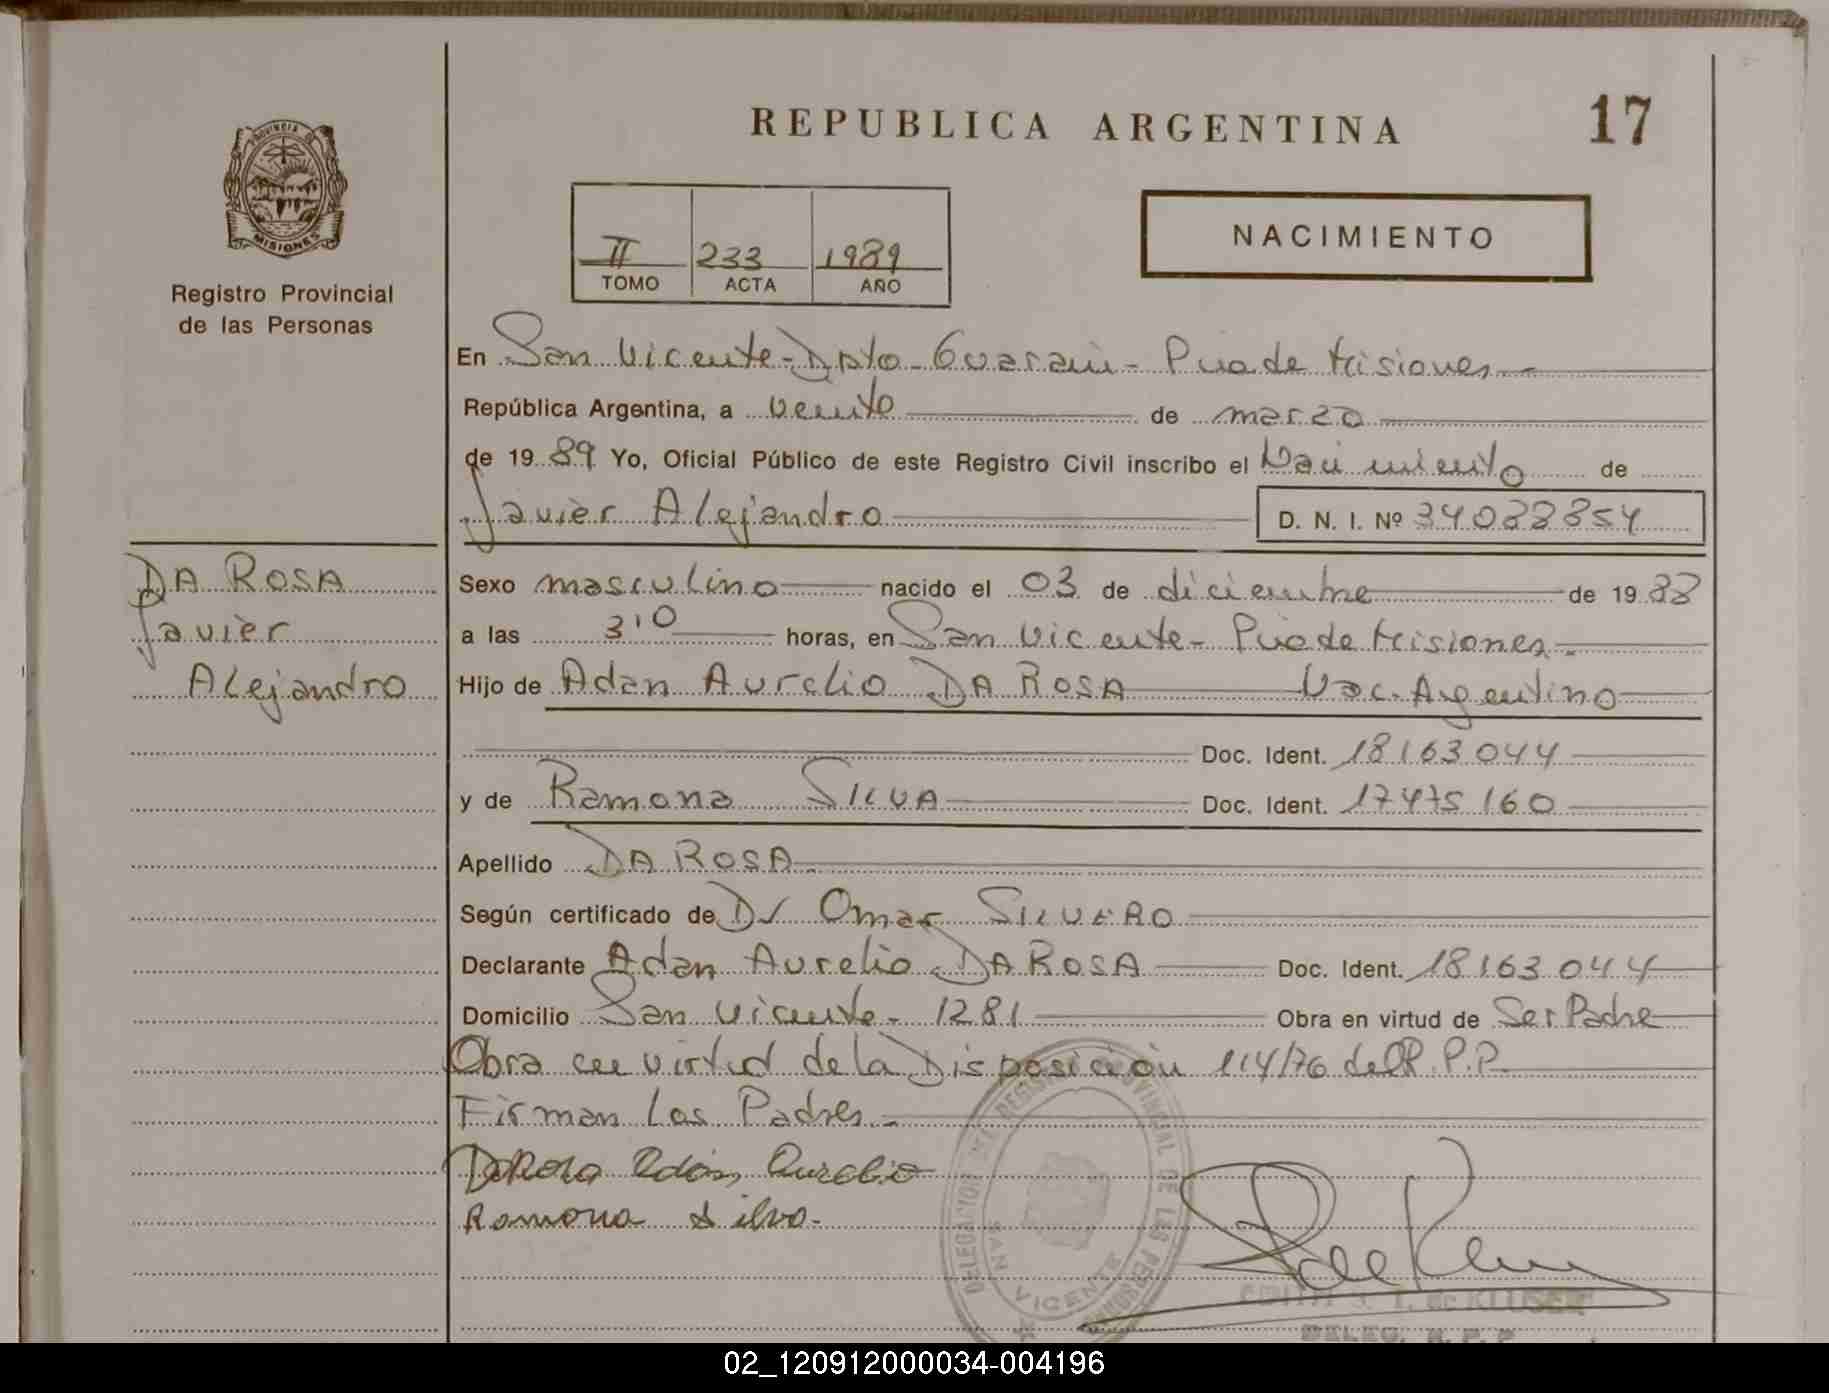 REPUBLICA ARGENTINA
17
PROVINCIA DE
MISIONES
Registro Provincial
de las Personas
II 233 1989
TOMO ACTA AÑO
NACIMIENTO
En San Vicente - Dpto - Guaraní - Pcia de Misiones -
República Argentina, a veinte de marzo
de 1989 Yo, Oficial Público de este Registro Civil inscribo el Nacimiento de
Javier Alejandro D. N. I. Nº 34088854
DA ROSA
Javier
Alejandro
Sexo masculino nacido el 03 de diciembre de 1988
a las 3'0 horas, en San Vicente - Pcia de Misiones -
Hijo de Adan Aurelio DA ROSA Nac. Argentino
Doc. Ident. 18163044
y de Ramona SILVA Doc. Ident. 17475160
Apellido DA ROSA
Según certificado de Dr Omar SILVERO
Declarante Adan Aurelio DA ROSA Doc. Ident. 18163044
Domicilio San Vicente - 1281 Obra en virtud de Ser Padre
Obra en virtud de la Disposición 114/76 del R.P.P.
Firman Los Padres -
Da Rosa Adán Aurelio
Ramona Silva.
DELEGACION DEL REGISTRO PROVINCIAL DE LAS PERSONAS
SAN VICENTE
de KLUSEN
DELEG. R. P. P
02_120912000034-004196